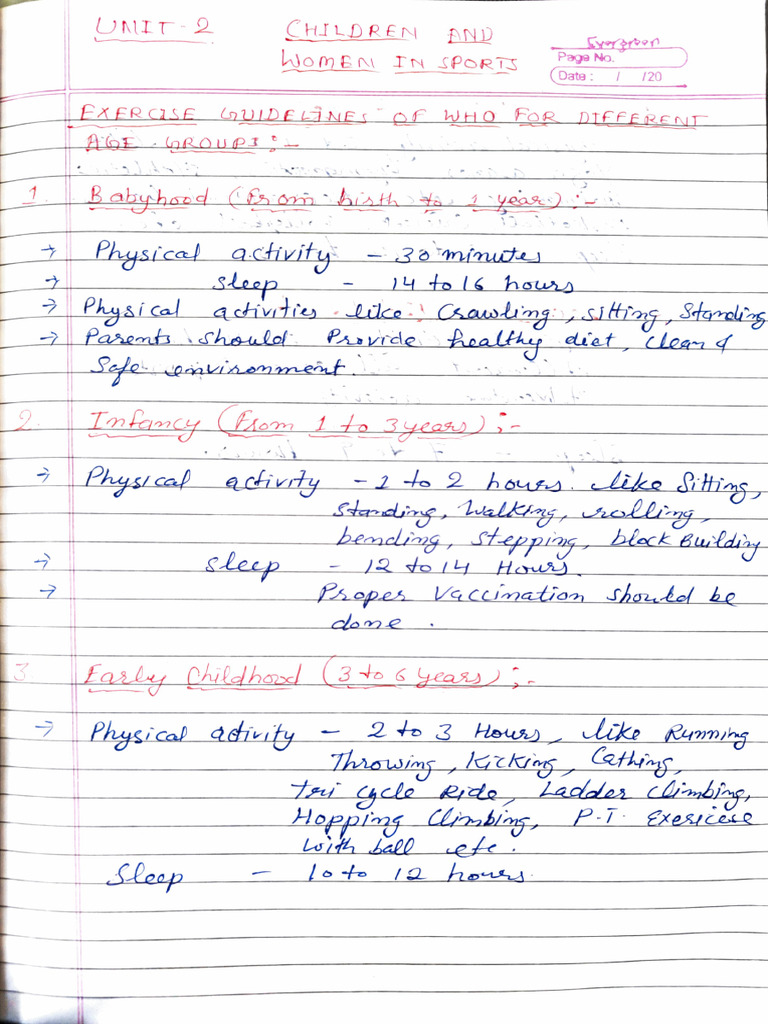 UNIT-2 CHILDREN AND
WOMEN IN SPORTS
Evergreen
Page No.
Date : / /20
EXERCISE GUIDELINES OF WHO FOR DIFFERENT
AGE GROUPS :-
1. Babyhood (From birth to 1 year) :-
→ Physical activity - 30 minutes
→ Sleep - 14 to 16 hours
→ Physical activities like Crawling, sitting, Standing
→ Parents should Provide healthy diet, clean &
Safe environment.
2. Infancy (From 1 to 3 years) ;-
→ Physical activity - 1 to 2 hours. like Sitting,
Standing, Walking, rolling,
bending, stepping, block Building
→ Sleep - 12 to 14 Hours.
→ Proper Vaccination should be
done .
3 Early Childhood (3 to 6 years) ;-
→ Physical activity - 2 to 3 Hours, like Running
Throwing, Kicking, Cathing,
Tri cycle Ride, Ladder climbing,
Hopping Climbing, P.T. Exericese
with ball etc.
Sleep - 10 to 12 hours.